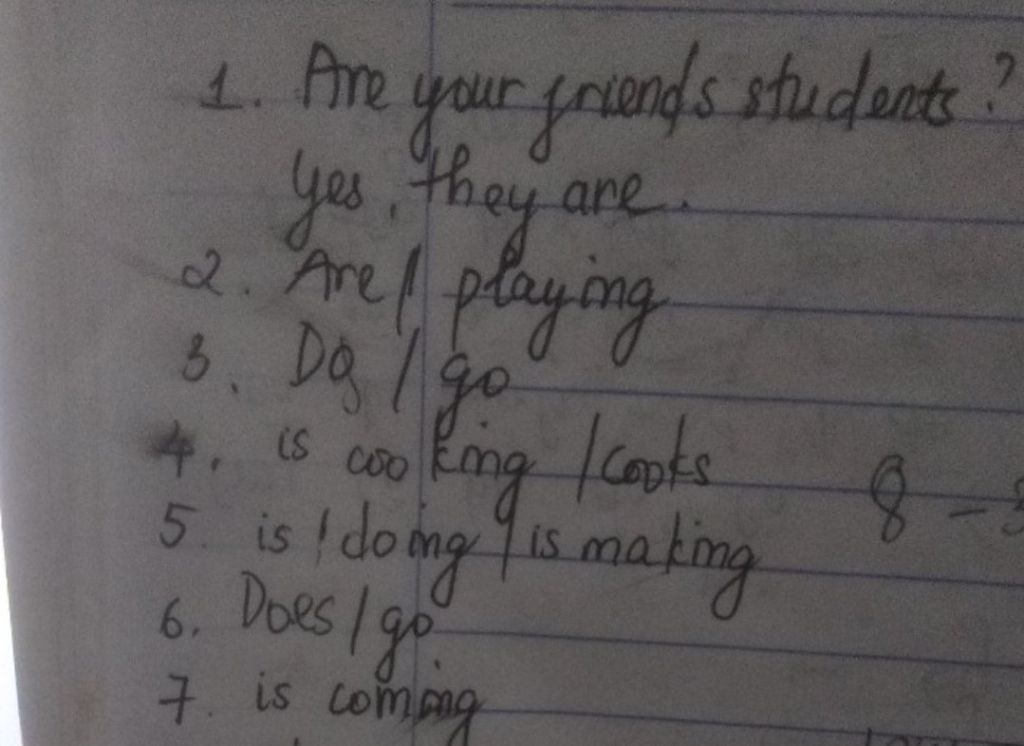 1. Are your friends students?
Yes, they are.
2. Are / playing
3. Do / go
4. is cooking / cooks
5. is / doing / is making
6. Does / go
7. is coming
8 -